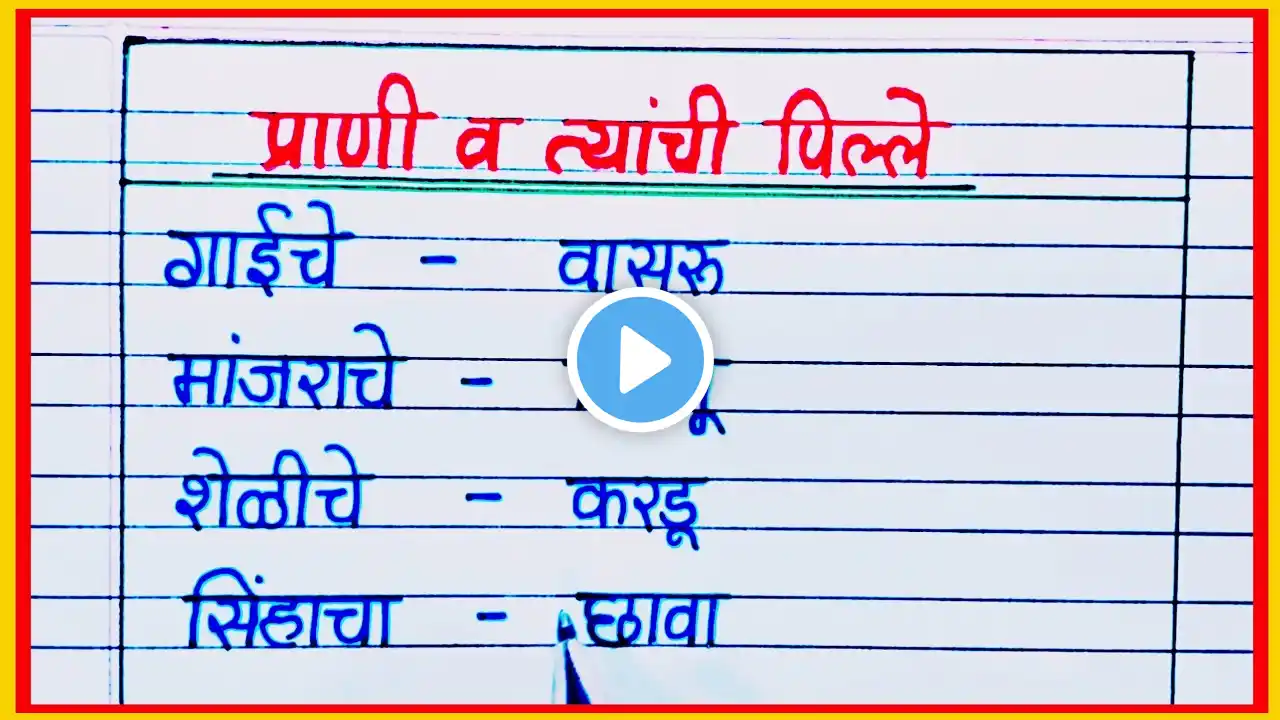 प्राणी व त्यांची पिल्ले
गाईचे - वासरू
मांजराचे -
शेळीचे - करडू
सिंहाचा - छावा